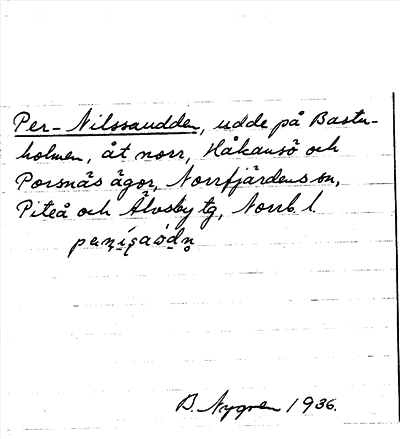 Per-Nilssaudden, udde på Bastu-
holmen, åt norr, Håkansö och
Porsnäs ägor, Norrfjärdens sn,
Piteå och Älvsby tg, Norrb. l.
B. Nygren 1936.